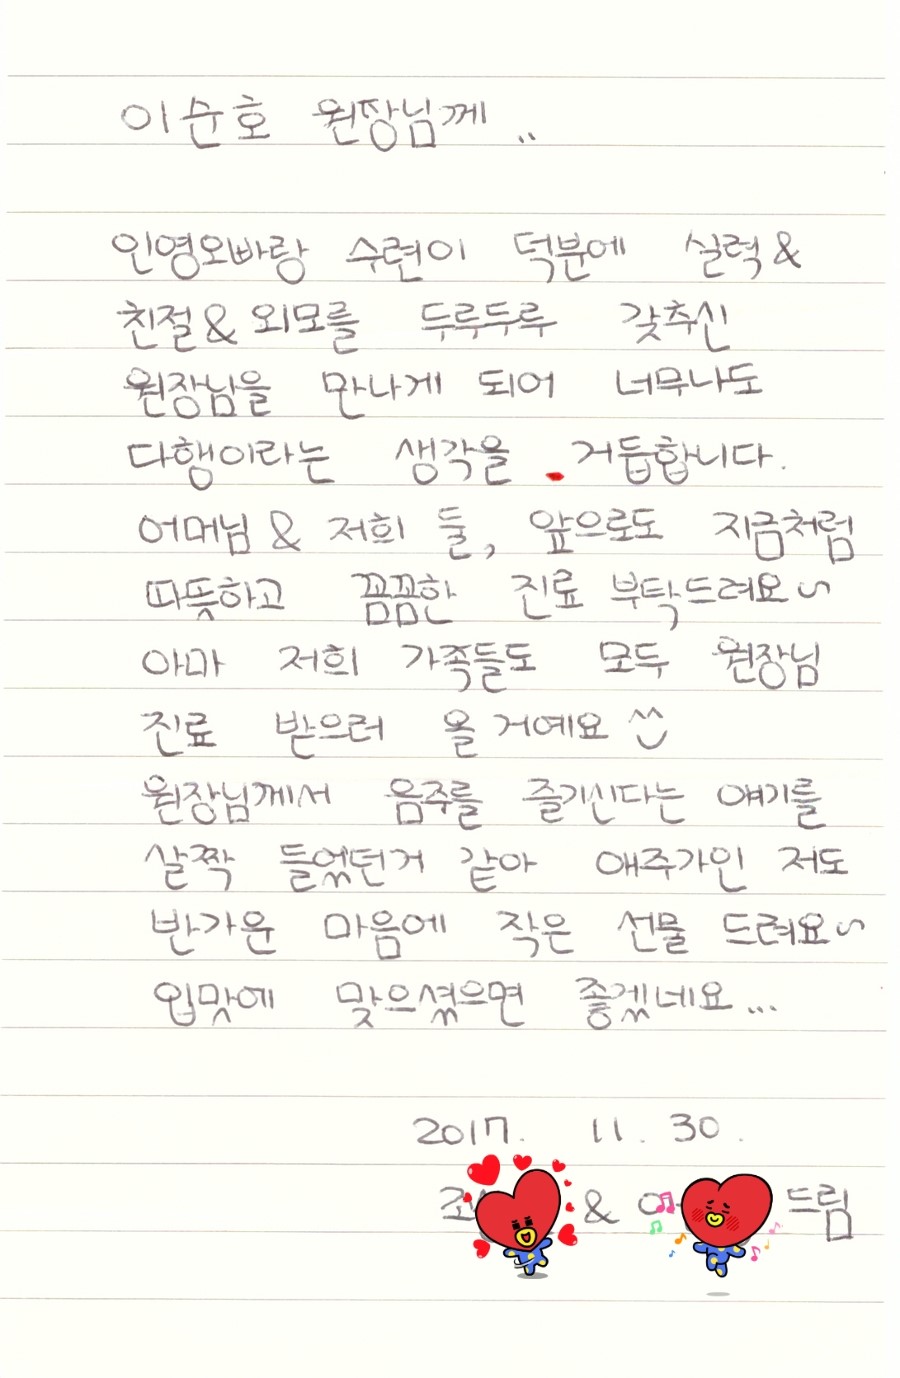 이순호 원장님께..
인영오빠랑 수련이 덕분에 실력&
친절&외모를 두루두루 갖추신
원장님을 만나게 되어 너무나도
다행이라는 생각을 거듭합니다.
어머님 & 저희 둘, 앞으로도 지금처럼
따뜻하고 꼼꼼한 진료 부탁드려요~
아마 저희 가족들도 모두 원장님
진료 받으러 올 거예요 ^^
원장님께서 음주를 즐기신다는 얘기를
살짝 들었던거 같아 애주가인 저도
반가운 마음에 작은 선물 드려요~
입맛에 맞으셨으면 좋겠네요...
2017. 11. 30.
& 드림